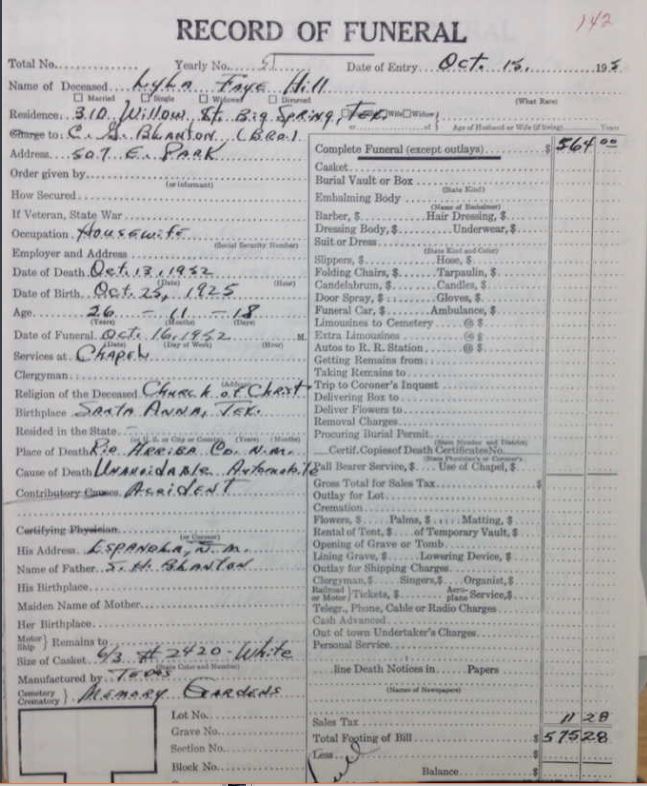 142
RECORD OF FUNERAL
Total No. Yearly No. 51 Date of Entry Oct. 15, 195
Name of Deceased Lyla Faye Hill
Married Single Widowed Divorced (What Race)
Residence: 310 Willow St. Big Spring, Tex. Wife Widow
or of Age of Husband or Wife (if living) Years
Charge to C. S. Blanton (Bro.)
Address 507 E. Park
Order given by
(or informant)
How Secured
If Veteran, State War
Occupation Housewife
(Social Security Number)
Employer and Address
Date of Death Oct. 13, 1952
(Date) (Hour)
Date of Birth Oct. 25, 1925
Age 26 - 11 - 18
(Years) (Months) (Days)
Date of Funeral Oct. 16, 1952 M.
(Date) (Day of Week) (Hour)
Services at Chapel
Clergyman
(Address)
Religion of the Deceased Church of Christ
Birthplace Santa Anna, Tex.
Resided in the State
(or U. S. or City or County) (Years) (Months)
Place of Death Rio Arriba Co. N.M.
Cause of Death Unavoidable Automobile
Contributory Causes Accident
Certifying Physician
(or Coroner)
His Address Espanola, N.M.
Name of Father S. H. Blanton
His Birthplace
Maiden Name of Mother
Her Birthplace
Motor Ship } Remains to
Size of Casket 6/3 #2420 - White
(State Color and Number)
Manufactured by Texas
Cemetery Crematory } Memory Gardens
Lot No.
Grave No.
Section No.
Block No.
Complete Funeral (except outlays) $ 564 00
Casket
Burial Vault or Box
(State Kind)
Embalming Body
(Name of Embalmer)
Barber, $ Hair Dressing, $
Dressing Body, $ Underwear, $
Suit or Dress
(State Kind and Color)
Slippers, $ Hose, $
Folding Chairs, $ Tarpaulin, $
Candelabrum, $ Candles, $
Door Spray, $ Gloves, $
Funeral Car, $ Ambulance, $
Limousines to Cemetery @ $
Extra Limousines @ $
Autos to R. R. Station @ $
Getting Remains from
Taking Remains to
Trip to Coroner's Inquest
Delivering Box to
Deliver Flowers to
Removal Charges
Procuring Burial Permit
(State Number and District)
Certif. Copies of Death Certificates No.
(State Physician's or Coroner's)
Pall Bearer Service, $ Use of Chapel, $
Gross Total for Sales Tax $
Outlay for Lot
Cremation
Flowers, $ Palms, $ Matting, $
Rental of Tent, $ of Temporary Vault, $
Opening of Grave or Tomb
Lining Grave, $ Lowering Device, $
Outlay for Shipping Charges
Clergyman, $ Singers, $ Organist, $
Railroad or Motor } Tickets, $ Aeroplane Service, $
Telegr., Phone, Cable or Radio Charges
Cash Advanced
Out of town Undertaker's Charges
Personal Service
line Death Notices in Papers
(Names of Newspapers)
Sales Tax 11 28
Total Footing of Bill $ 575 28
Less
Balance $